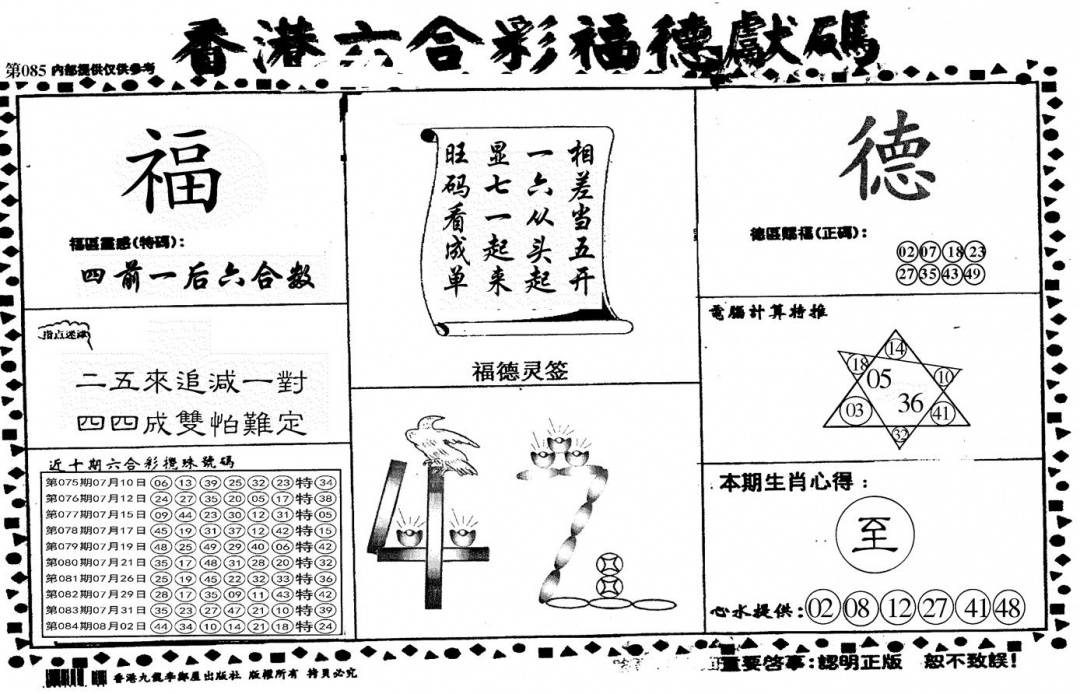 香港六合彩福德獻碼
第085 内部提供仅供参考
福
福區靈感(特碼):
四前一后六合数
指点迷津
二五來追减一對
四四成雙怕難定
近十期六合彩攪珠號碼
第075期07月10日 06 13 39 25 32 23 特 34
第076期07月12日 24 27 35 20 05 17 特 38
第077期07月15日 09 44 23 30 12 31 特 05
第078期07月17日 45 19 31 37 12 42 特 15
第079期07月19日 48 25 49 29 40 06 特 42
第080期07月21日 35 17 48 31 28 20 特 32
第081期07月26日 25 19 45 22 32 33 特 36
第082期07月29日 28 17 35 09 11 43 特 42
第083期07月31日 35 23 27 47 21 10 特 39
第084期08月02日 44 34 10 14 21 18 特 24
相差当五开
一六从头起
显七一起来
旺码看成单
福德灵签
42
德
德區賜福(正碼):
02 07 18 23
27 35 43 49
電腦計算特推
14
18 05 10
03 36 41
32
本期生肖心得:
至
心水提供: 02 08 12 27 41 48
香港九龍李鄭屋出版社 版權所有 拷貝必究
重要啓事:認明正版 恕不致誤!